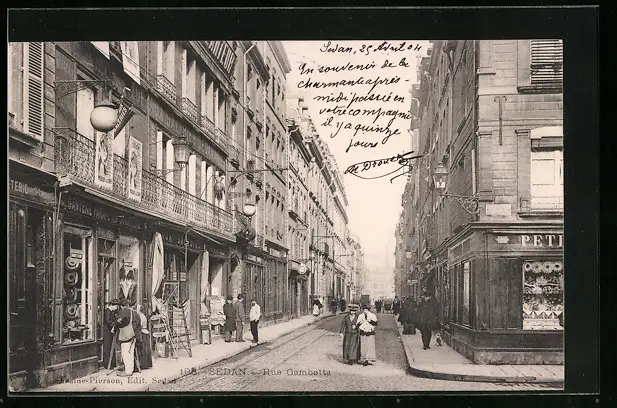 Sedan, 25 Avril 04
En souvenir de la
charmante après-
midi passée en
votre compagnie
il y a quinze
jours
M Drouet
TERIE
PETI
198. SEDAN - Rue Gambetta
-Pierson, Edit. Sedan